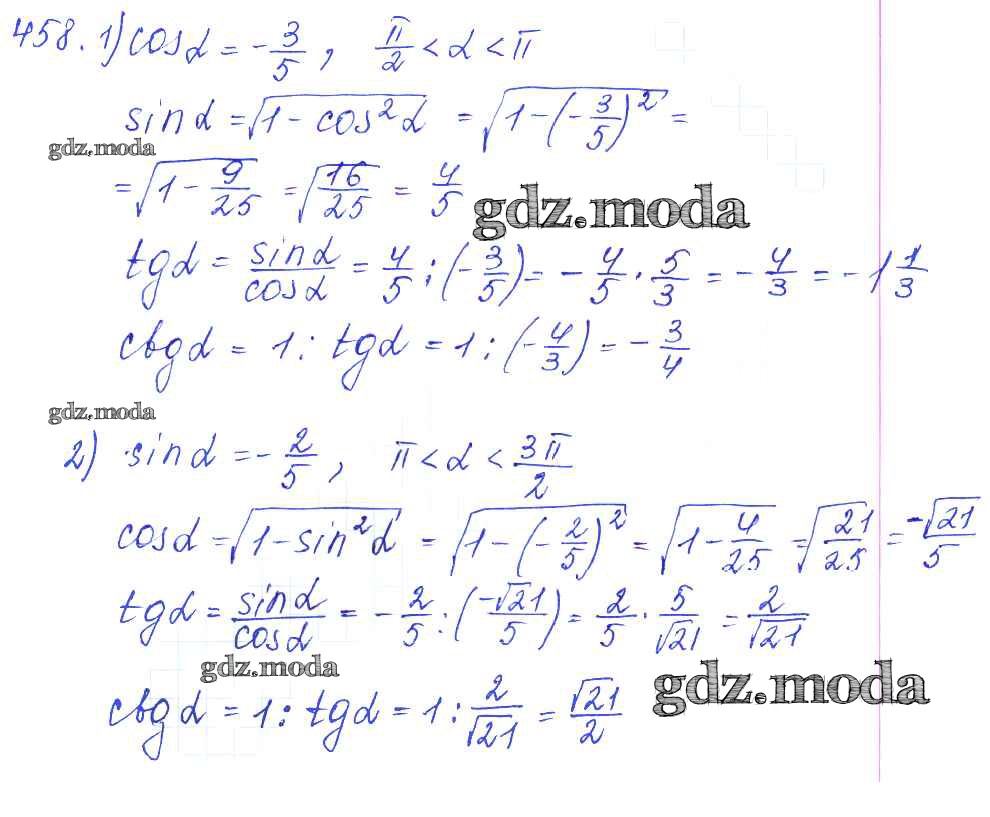 458. 1) cosα = -3/5, π/2 < α < π
sinα = √(1 - cos²α) = √(1 - (-3/5)²) =
gdz.moda
= √(1 - 9/25) = √(16/25) = 4/5
gdz.moda
tgα = sinα/cosα = 4/5 : (-3/5) = -4/5 · 5/3 = -4/3 = -1 1/3
ctgα = 1 : tgα = 1 : (-4/3) = -3/4
gdz.moda
2) sinα = -2/5, π < α < 3π/2
cosα = √(1 - sin²α) = √(1 - (-2/5)²) = √(1 - 4/25) = √(21/25) = -√21/5
tgα = sinα/cosα = -2/5 : (-√21/5) = 2/5 · 5/√21 = 2/√21
gdz.moda
gdz.moda
ctgα = 1 : tgα = 1 : 2/√21 = √21/2